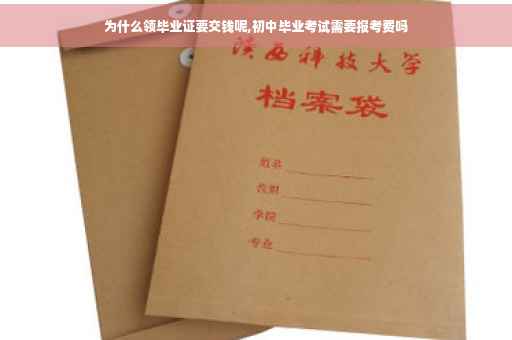 为什么领毕业证要交钱呢,初中毕业考试需要报考费吗
陕西科技大学
档案袋
姓名
学院
专业